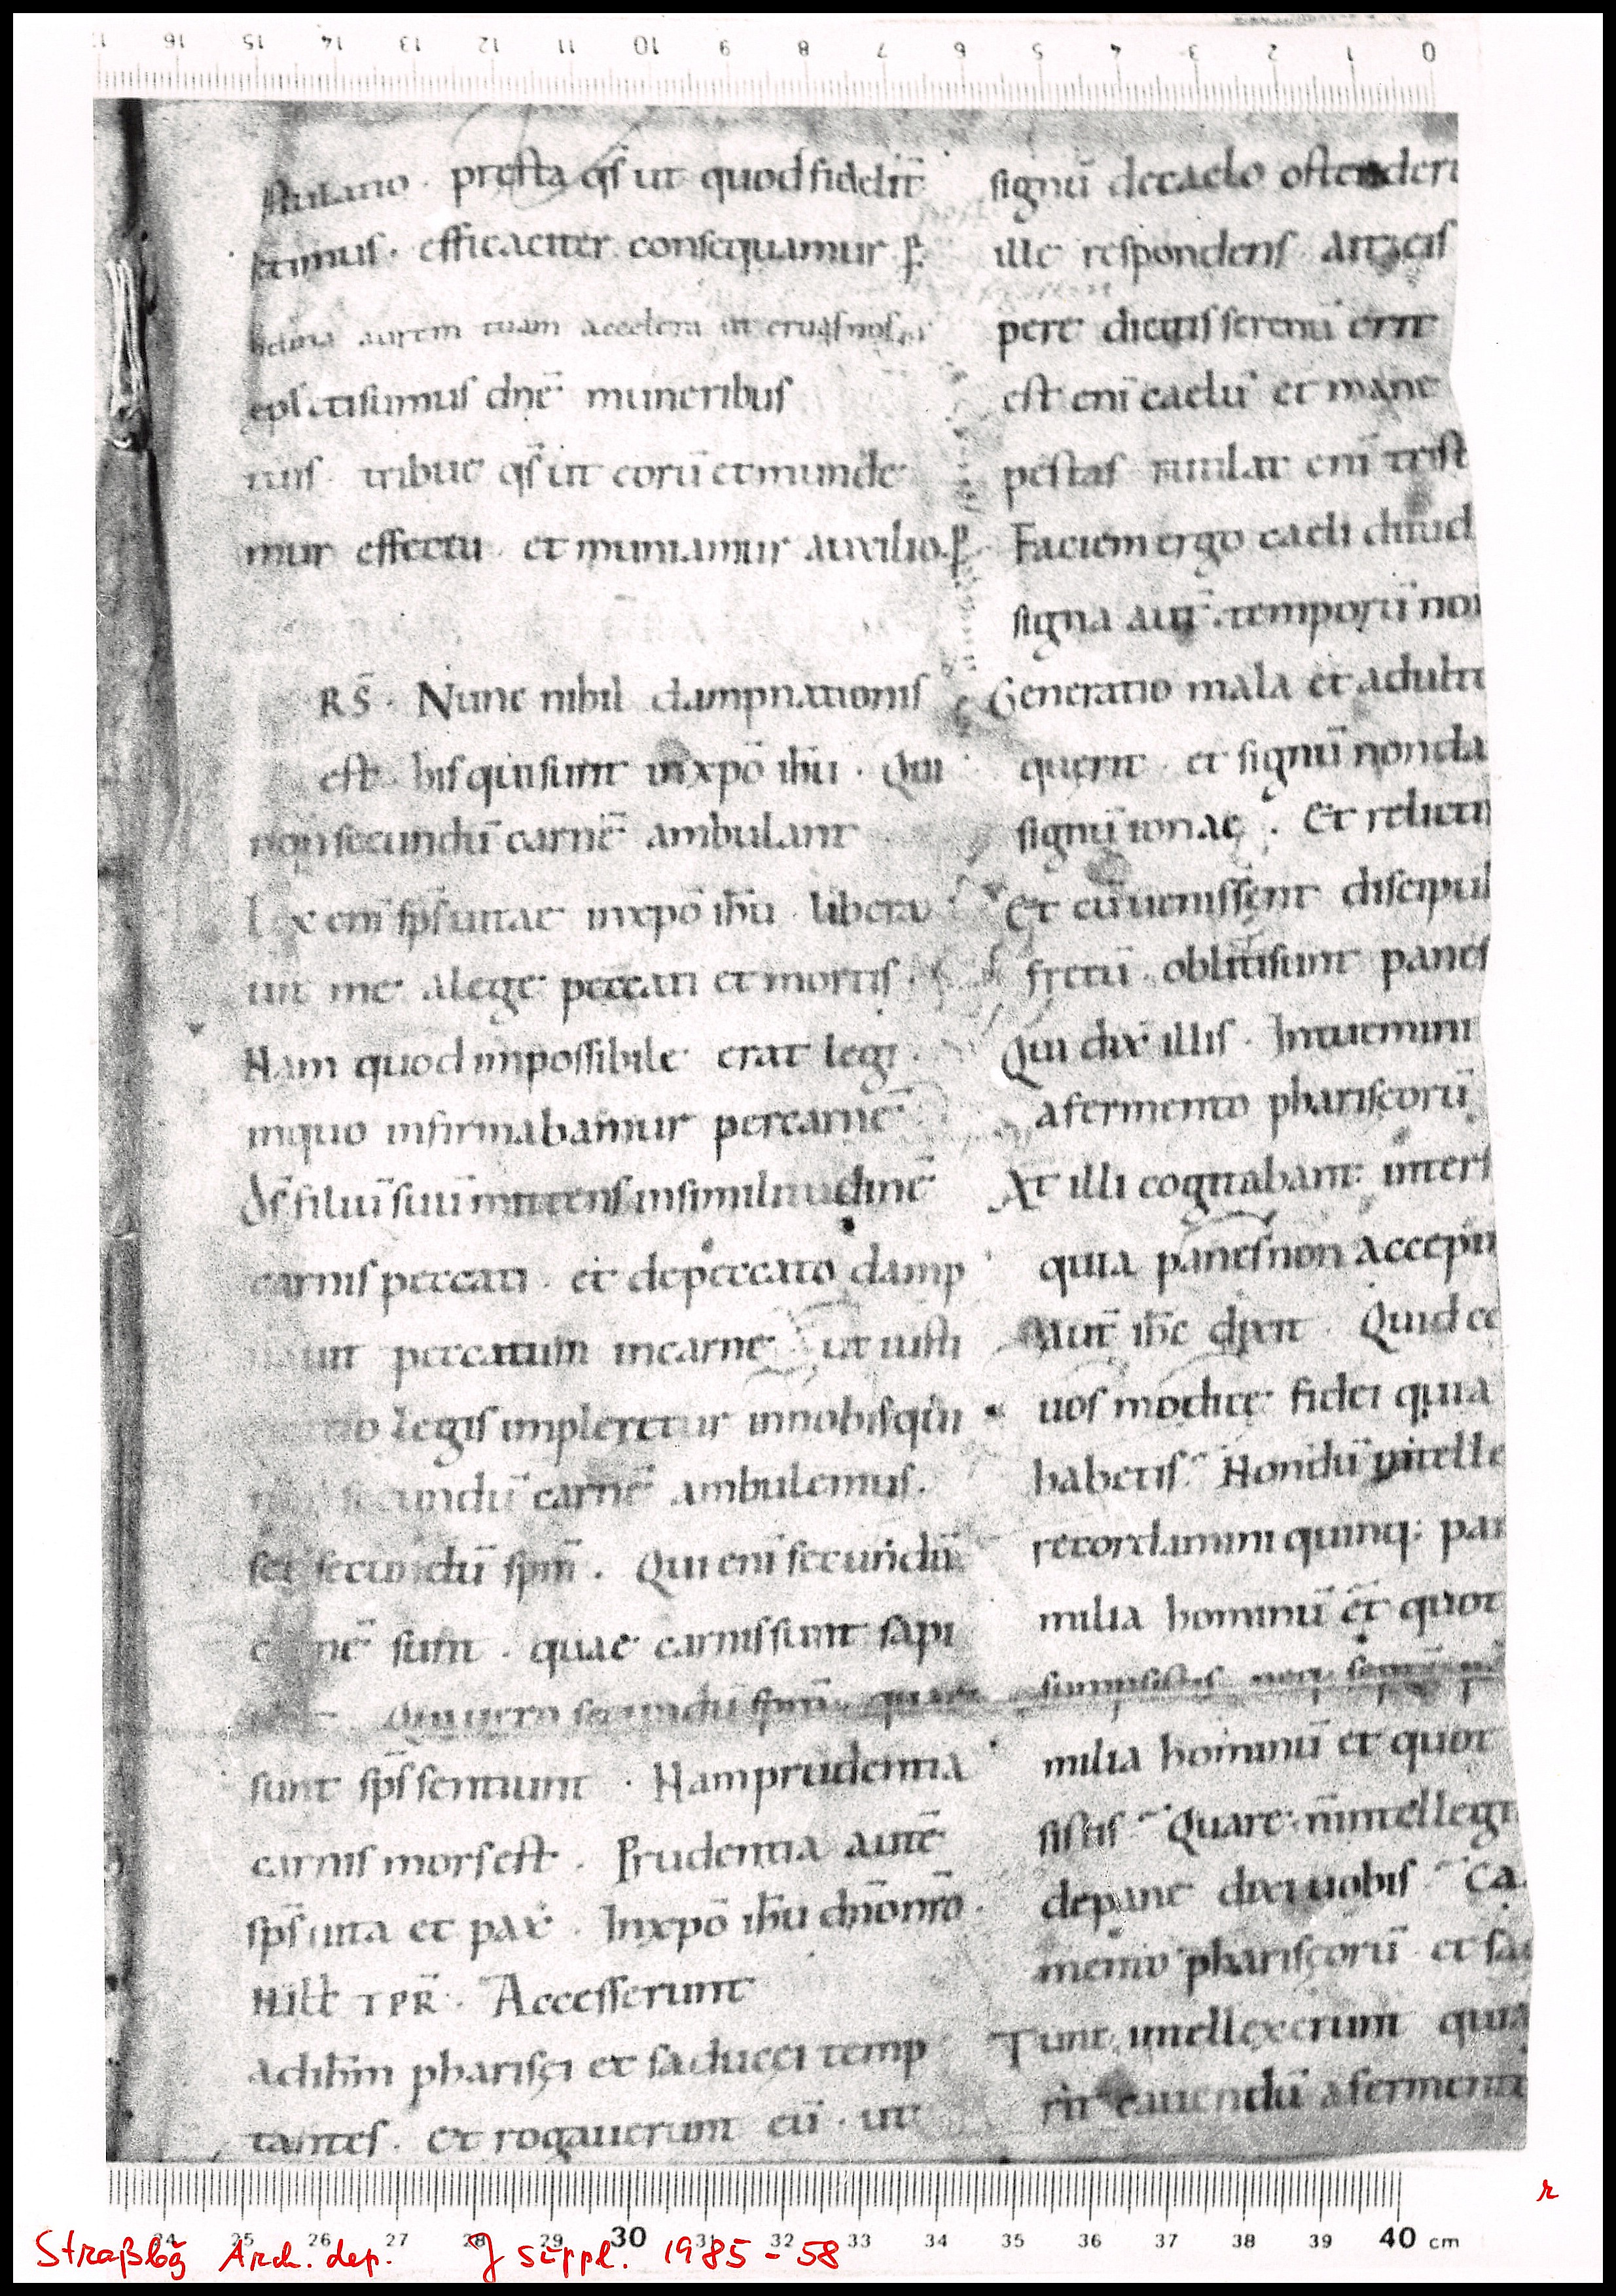 presta q̄s ut quod fidelit̄
etimus · efficaciter consequamur · p̄
aurem tuam accelera ut eruas nos
epletisumus dnē muneribus
tuis · tribue q̄s ut eorū et munde
mur effectu · et muniamur auxilio · p̄
RS̄ · Nunc nihil dampnationis
est his qui sunt in xpō ihū · Qui
non secundū carnē ambulant
Lex eni sp̄s uitae in xpō ihū · libera
uit me a lege peccati et mortis ·
Nam quod inpossibile erat legi ·
in quo infirmabamur per carnē
d̄s filiū suū mittens in similitudinē
carnis peccati · et de peccato damp
nauit peccatum in carne ut iusti
legis impleretur in nobis qui
non secundū carnē ambulemus ·
set secundū sp̄m · Qui eni secundū
carnē sunt · quae carnis sunt sapi
Qui uero secundū sp̄m · quae
sunt sp̄s sentiunt · Nam prudentia
carnis mors est · Prudentia autē
sp̄s uita et pax · In xpō ihū dn̄o nr̄o ·
In ill̄ t̄p̄r̄ · Accesserunt
ad ihm̄ pharisęi et saducei temp
tantes · et rogauerunt eū · ut
signū de caelo ostenderi
ille respondens ait eis
pere dicitis serenū erit
est enī caelū et mane
pestas rutilat enī trist
Faciem ergo caeli diiud
signa aut̄ temporū non
Generatio mala et adulte
querit · et signū non da
signū ionae · Et relicti
Et cū uenissent discipul
fretū · obliti sunt panes
Qui dix̄ illis · Intuemini
a fermento pharisęorū
At illi cogitabant inter s
quia panes non accepi
aut̄ ihc̄ dixit · Quid co
uos modice fidei quia
habetis · Nondū intelle
recordamini quinq; pan
milia hominū et quot
sumpsistis neq; septē
milia hominū et quot
sistis · Quare n̄ intellegi
de pane dixi uobis · Ca
mento pharisęorū et sa
Tunc intellexerunt quia
rit cauendū a fermento
0 1 2 3 4 5 6 7 8 9 10 11 12 13 14 15 16 17
24 25 26 27 28 29 30 31 32 33 34 35 36 37 38 39 40 cm
Straßbg Arch. dep. J suppl. 1985-58
r